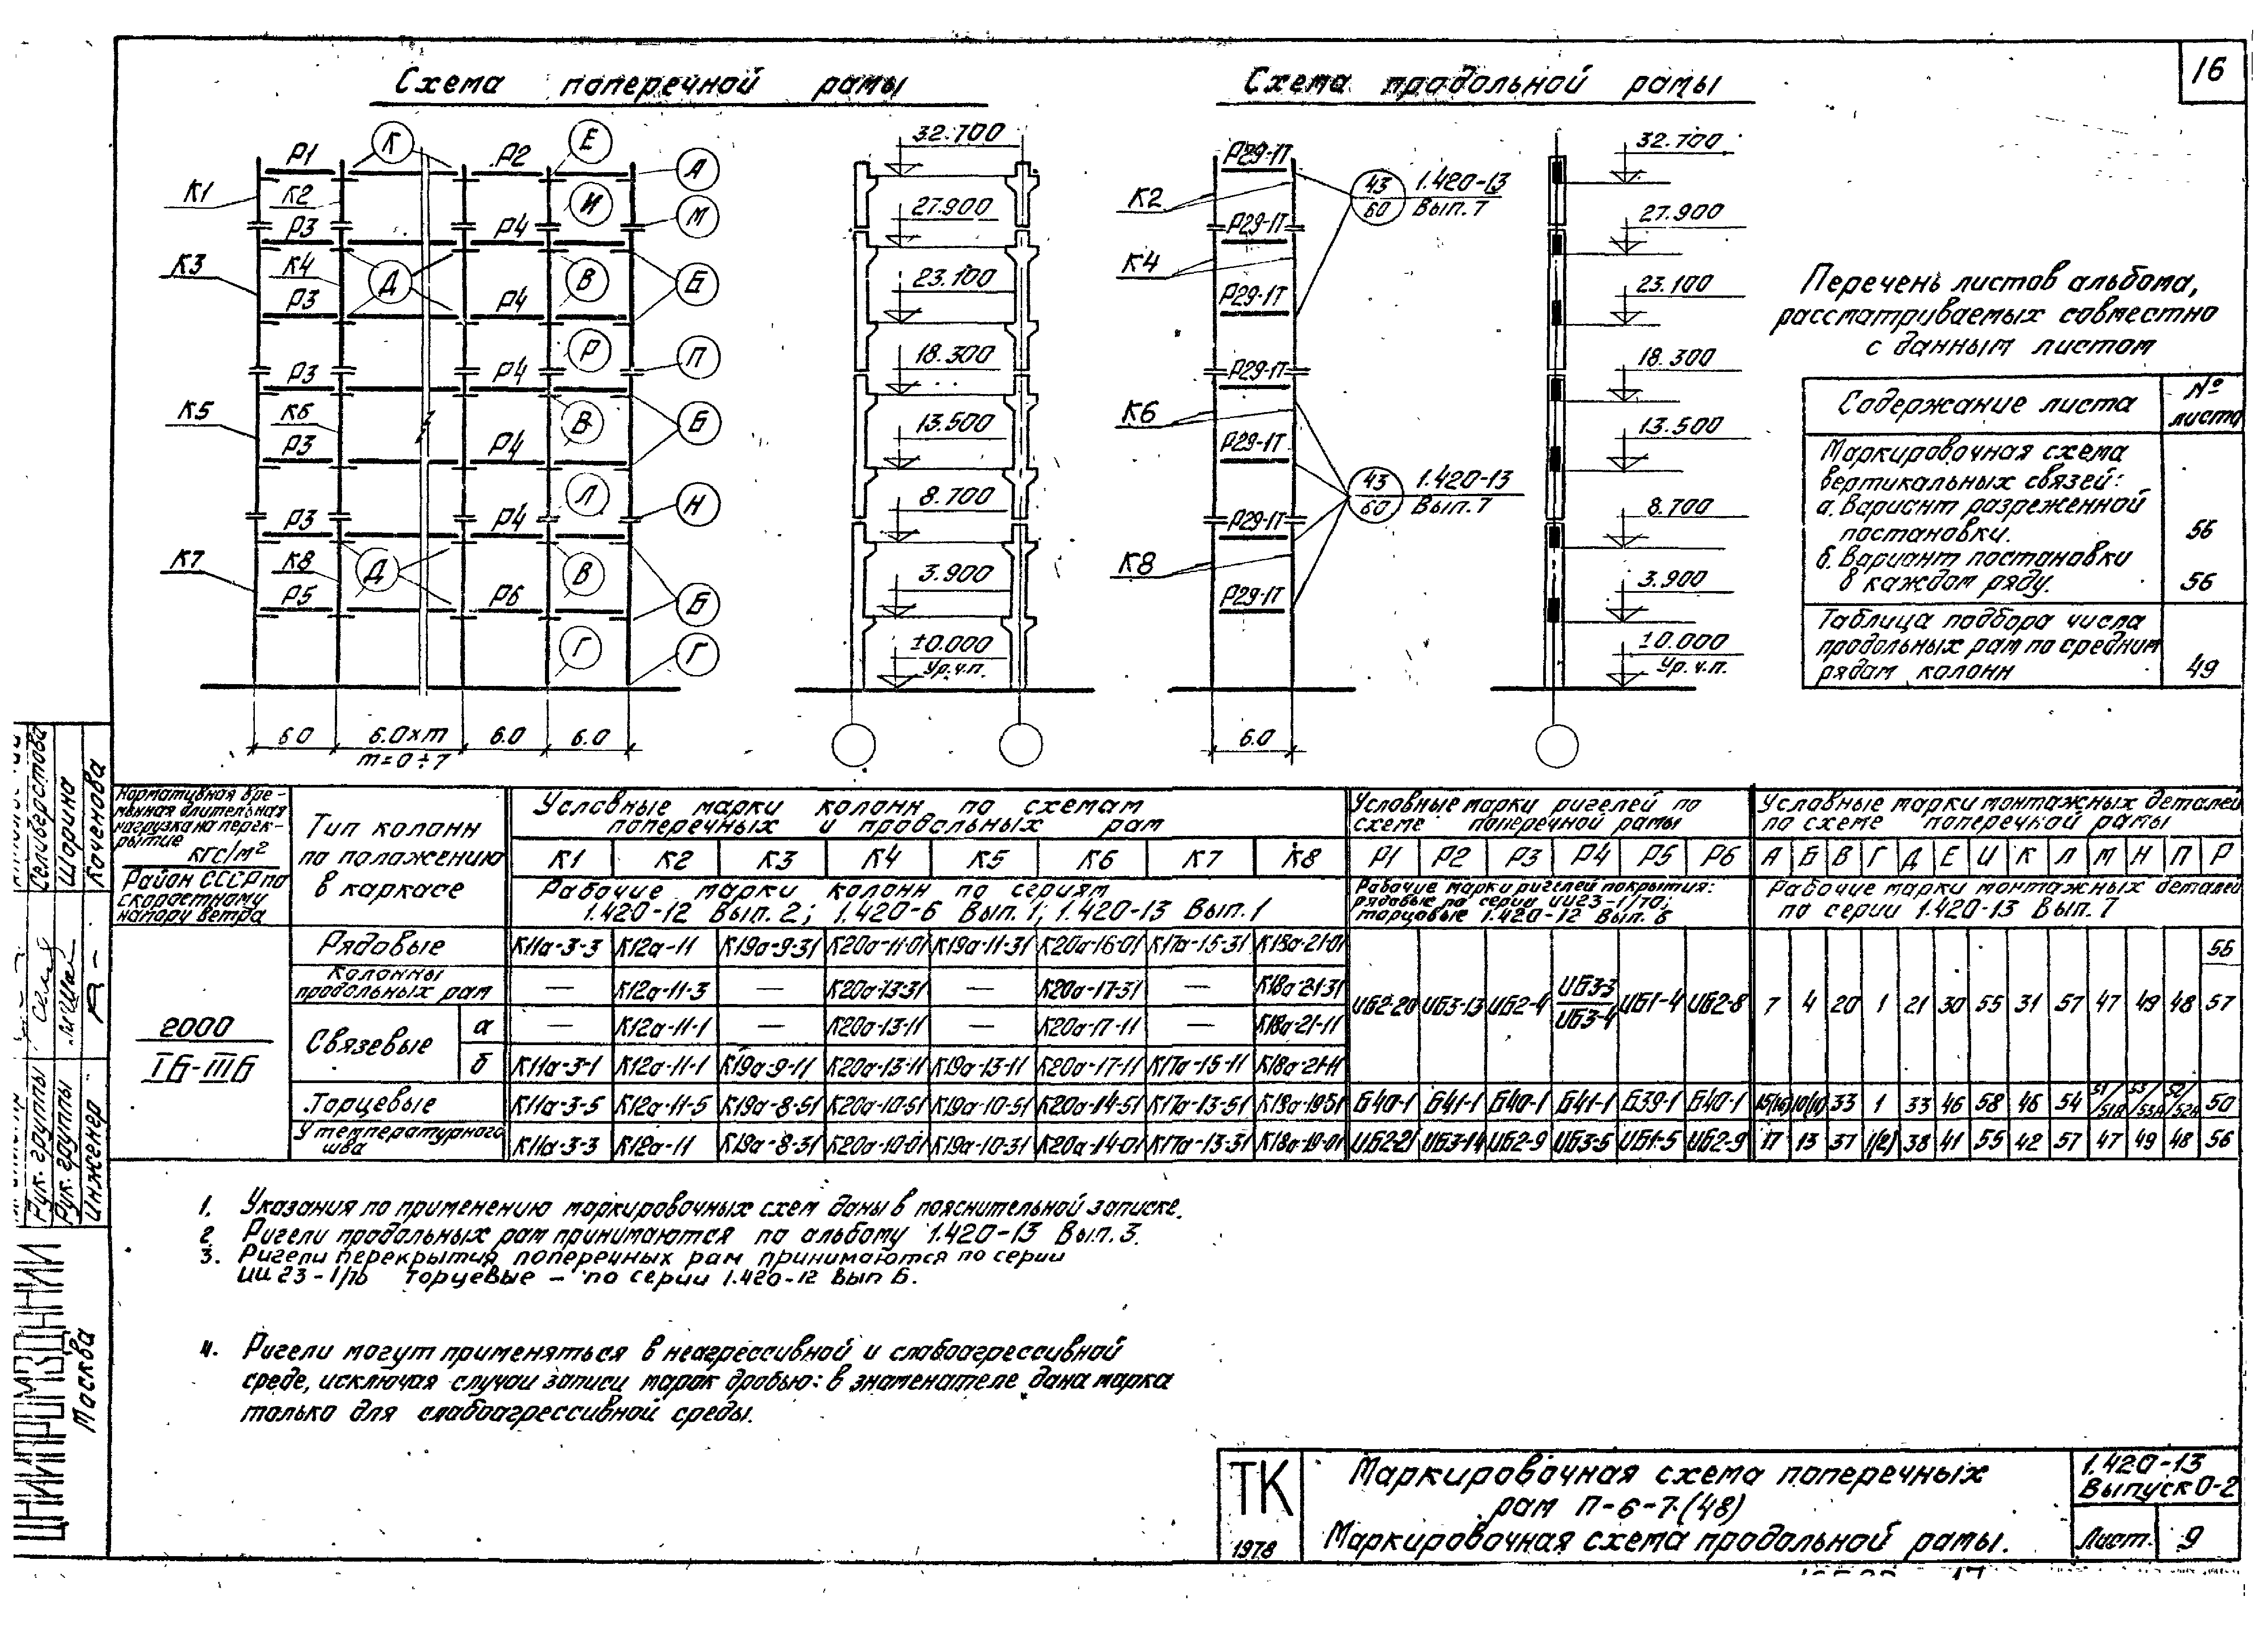 16
Схема поперечной рамы
Схема продольной рамы
Р1 К Р2 Е А
К1 К2 И М
Р3 Р4
К3 К4 Д В Б
Р3 Р4
Р П
Р3 Р4
К5 К6 В Б
Р3 Р4
Л Н
Р3 Р4
К7 К8 Д В Б
Р5 Р6
Г Г
6.0 6.0×m 6.0 6.0
m=0÷7
32.700
27.900
23.100
18.300
13.500
8.700
3.900
±0.000
Ур.ч.п.
Р29-1Т
К2
43 1.420-13
60 Вып.7
Р29-1Т
К4
Р29-1Т
Р29-1Т
К6
Р29-1Т
43 1.420-13
60 Вып.7
Р29-1Т
К8
Р29-1Т
6.0
32.700
27.900
23.100
18.300
13.500
8.700
3.900
±0.000
Ур.ч.п.
Перечень листов альбома,
рассматриваемых совместно
с данным листом
Содержание листа № листа
Маркировочная схема
вертикальных связей:
а. Вариант разреженной
постановки. 56
б. Вариант постановки
в каждом ряду. 56
Таблица подбора числа
продольных рам по средним
рядам колонн 49
Нормативная вре-
менная длительная
нагрузка на перек-
рытие
кгс/м²
Район СССР по
скоростному
напору ветра
Тип колонн
по положению
в каркасе
Условные марки колонн по схемам
поперечных и продольных рам
К1 К2 К3 К4 К5 К6 К7 К8
Рабочие марки колонн по сериям
1.420-12 Вып. 2; 1.420-6 Вып. 1; 1.420-13 Вып. 1
Условные марки ригелей по
схеме поперечной рамы
Р1 Р2 Р3 Р4 Р5 Р6
Рабочие марки ригелей покрытия:
рядовые по серии ИИ23-1/70;
торцовые 1.420-12 Вып. 6
Условные марки монтажных деталей
по схеме поперечной рамы
А Б В Г Д Е И К Л М Н П Р
Рабочие марки монтажных деталей
по серии 1.420-13 Вып. 7
2000
IБ-IIIБ
Рядовые К11а-3-3 К12а-11 К19а-9-31 К20а-11-01 К19а-11-31 К20а-16-01 К17а-15-31 К18а-21-01
Колонны
продольных рам — К12а-11-3 — К20а-13-31 — К20а-17-31 — К18а-21-31
Связевые
а — К12а-11-1 — К20а-13-11 — К20а-17-11 — К18а-21-11
б К11а-3-1 К12а-11-1 К19а-9-11 К20а-13-11 К19а-13-11 К20а-17-11 К17а-15-11 К18а-21-11
ИБ2-20 ИБ3-13 ИБ2-4 ИБ3-3 ИБ3-4 ИБ1-4 ИБ2-8 7 4 20 1 21 30 55 31 57 47 49 48 57
Торцевые К11а-3-5 К12а-11-5 К19а-8-51 К20а-10-51 К19а-10-51 К20а-14-51 К17а-13-51 К18а-19-51 Б40-1 Б41-1 Б40-1 Б41-1 Б39-1 Б40-1 15(16) 10(11) 33 1 33 46 58 46 54 50
У температурного
шва К11а-3-3 К12а-11 К19а-8-31 К20а-10-01 К19а-10-31 К20а-14-01 К17а-13-31 К18а-19-01 ИБ2-21 ИБ3-14 ИБ2-9 ИБ3-5 ИБ1-5 ИБ2-9 17 13 37 1(2) 38 41 55 42 57 47 49 48 56
1. Указания по применению маркировочных схем даны в пояснительной записке.
2 Ригели продольных рам принимаются по альбому 1.420-13 Вып. 3.
3. Ригели перекрытия поперечных рам принимаются по серии
ИИ 23-1/70 торцевые - по серии 1.420-12 вып 6.
4. Ригели могут применяться в неагрессивной и слабоагрессивной
среде, исключая случаи записи марок дробью: в знаменателе дана марка
только для слабоагрессивной среды.
Рук. группы Селиверстова
Рук. группы Шорина
Инженер Коченова
ЦНИИПРОМЗДАНИЙ
Москва
ТК
1978
Маркировочная схема поперечных
рам П-6-7.(48)
Маркировочная схема продольной рамы.
1.420-13
Выпуск 0-2
Лист 9